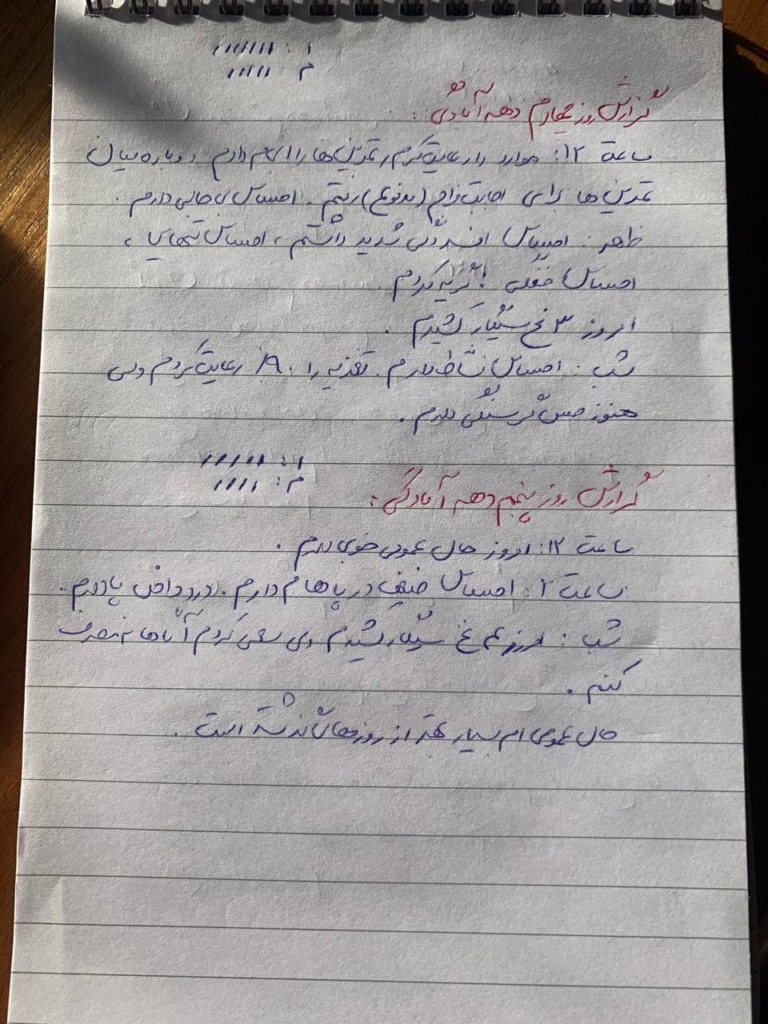 ا : ///////
م : /////
گزارش روز چهارم دهه آمادگی :
ساعت ۱۲: موارد را رعایت کردم، تمرین‌ها را انجام دادم دوباره میان
تمرین ها برای اجابت مزاج (مدفوع) رفتم . احساس بی حالی دارم .
ظهر : احساس افسردگی شدید داشتم ، احساس تنهایی ،
احساس خفگی ! گریه کردم .
امروز ۳ نخ سیگار کشیدم .
شب : احساس نشاط دارم . تغذیه را ۹۰٪ رعایت کردم ولی
هنوز حس گرسنگی دارم .
ا : //////
م : ////
گزارش روز پنجم دهه آمادگی :
ساعت ۱۲: امروز حال عمومی خوبی دارم .
ساعت ۲ : احساس ضعیف در پاهام دارم . درد داخل پا دارم .
شب : امروز نخ سیگار کشیدم ولی سعی کردم آنها مصرف
کنم .
حال عمومی ام بسیار بهتر از روزهای گذشته است .